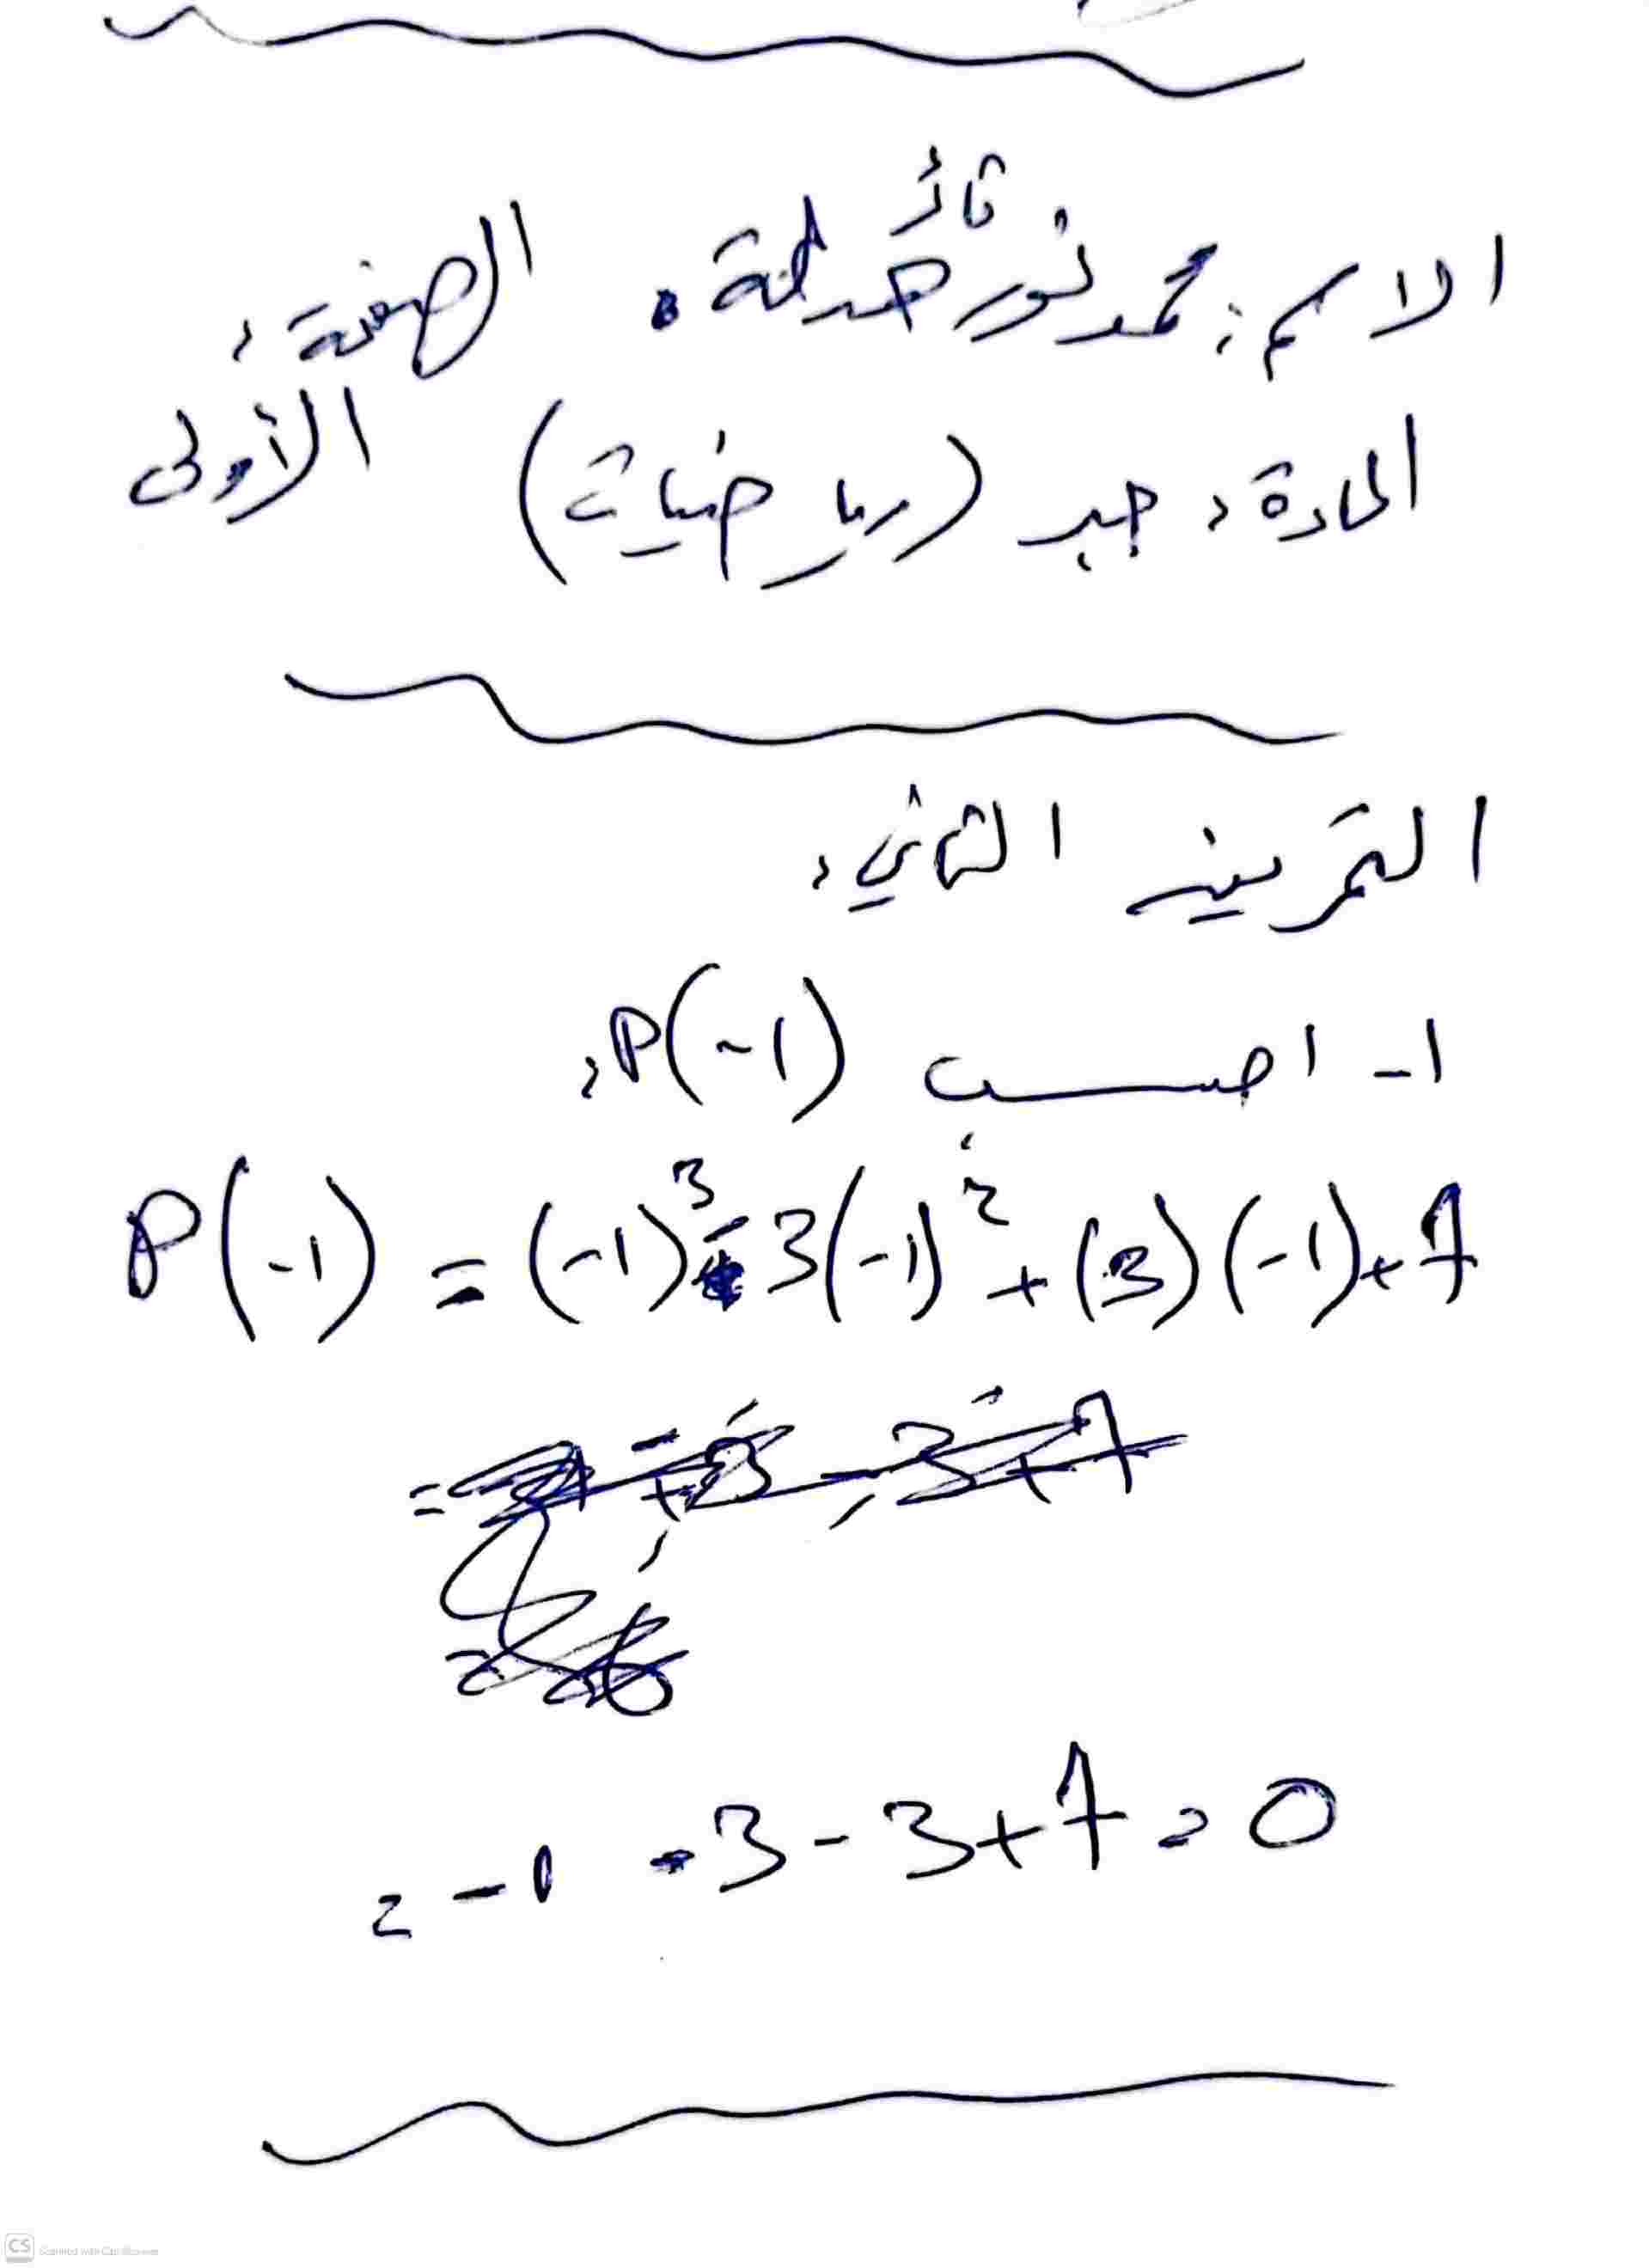 ثائر
الاسم: محمد نور حدلة. الصفحة:
المادة: جبر (رياضيات) الأولى
التمرين الثاني:
1- احسب P(-1):
P(-1) = (-1)³ - 3(-1)² + (3)(-1) + 7
= -1 - 3 - 3 + 7 = 0
CS Scanned with CamScanner